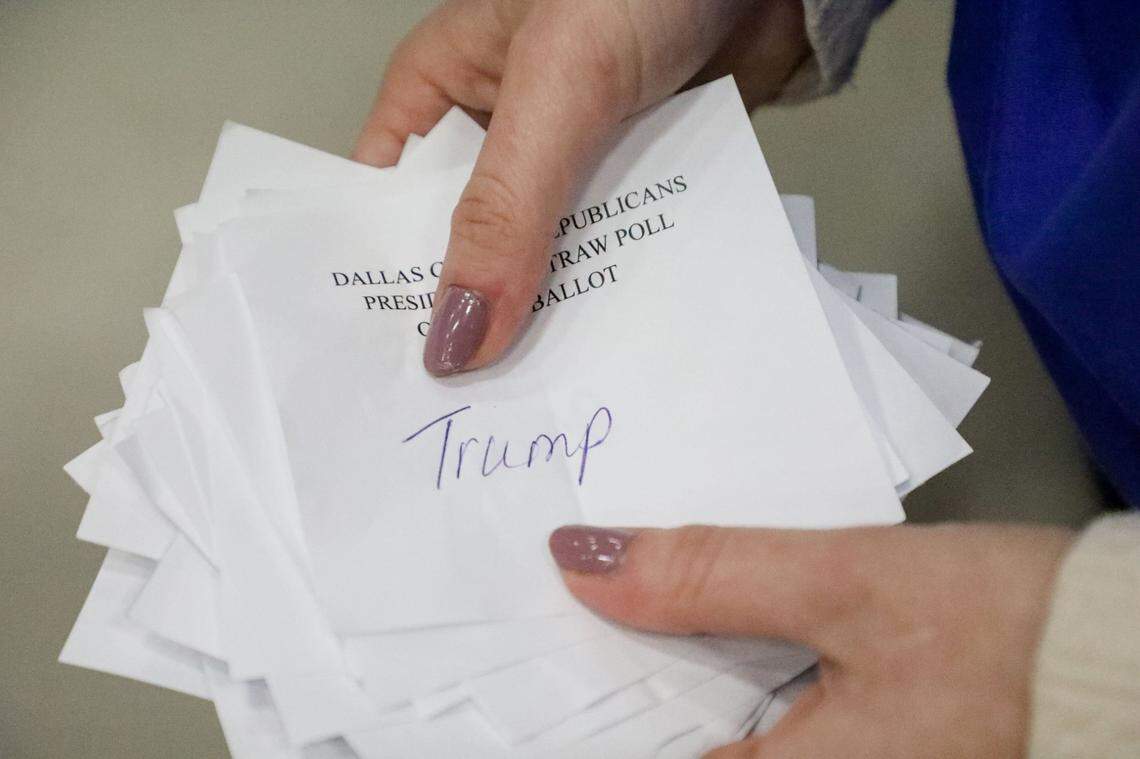 DALLAS REPUBLICANS
STRAW POLL
BALLOT
Trump